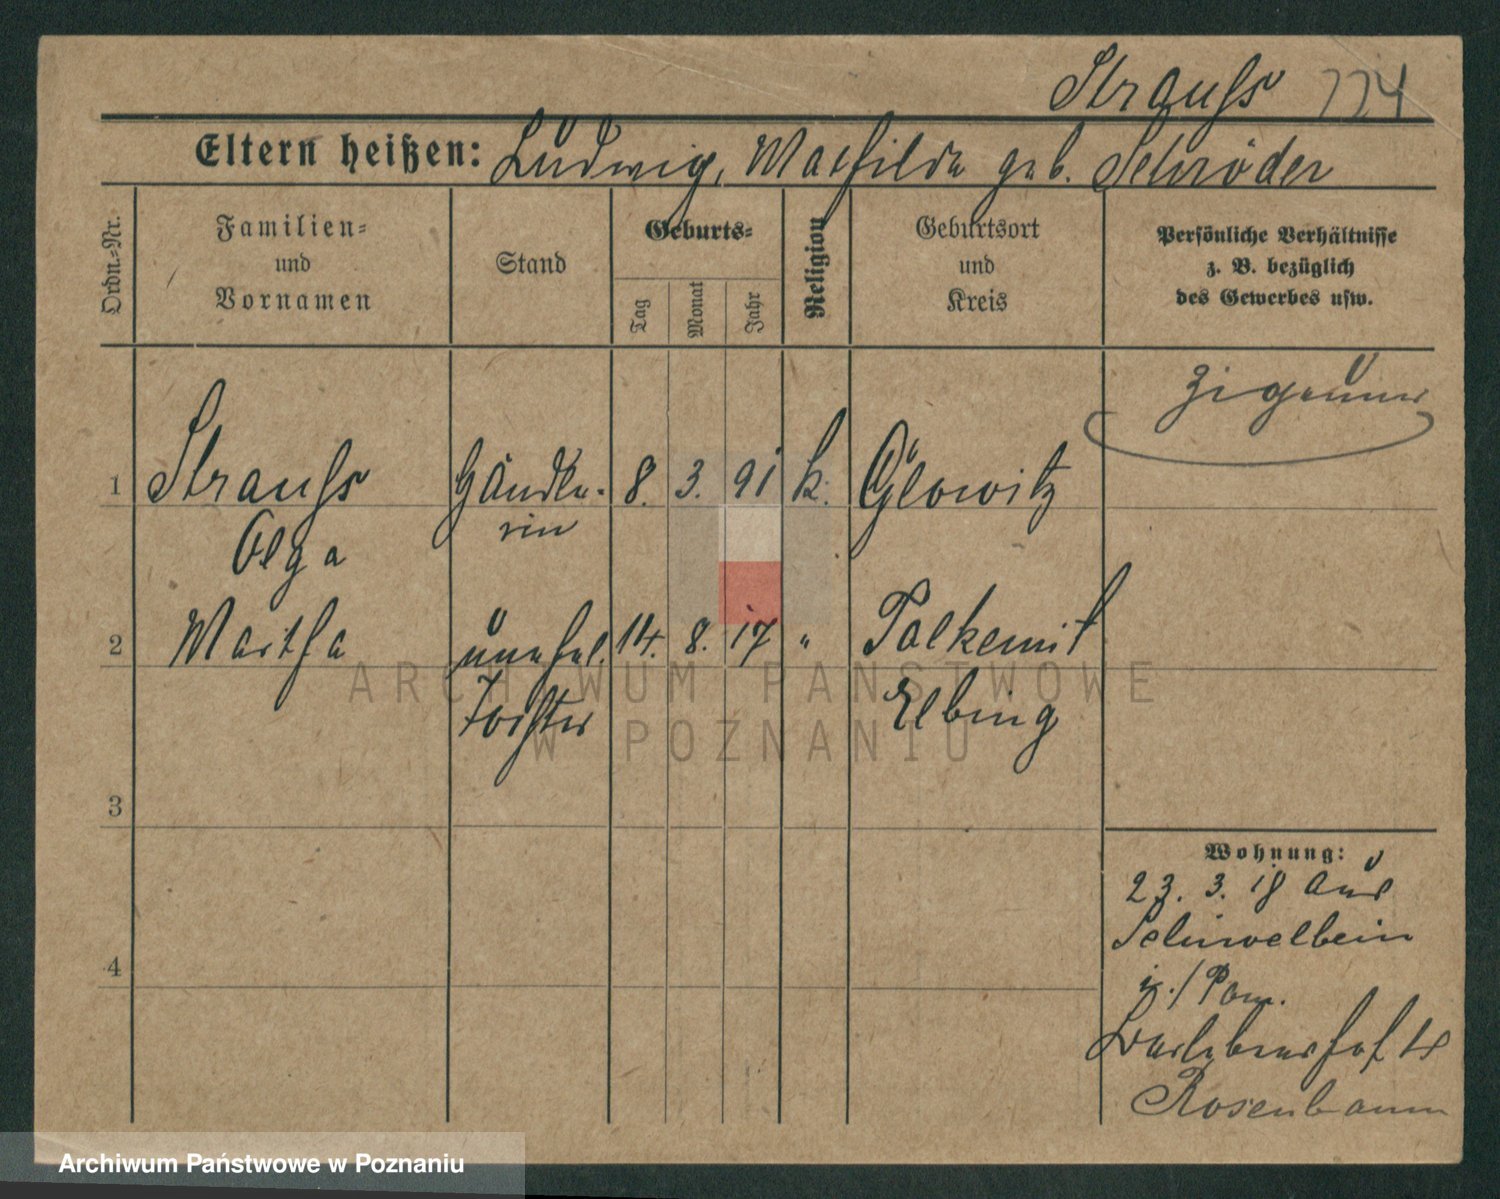 Strauſs 774
Eltern heißen: Ludwig, Mathilde geb. Schröder
Ordn.-Nr.
Familien-
und
Vornamen
Stand
Geburts-
Tag
Monat
Jahr
Religion
Geburtsort
und
Kreis
Persönliche Verhältnisse
z. B. bezüglich
des Gewerbes usw.
Zigeuner
1 Strauſs Händle- 8. 3. 91 k. Glowitz
Olga rin
2 Martha unehel. 14. 8. 17 " Tolkemit
Tochter Elbing
3
Wohnung:
23. 3. 18 aus
Schivelbein
i./Pom.
4
Rosenbaum
ARCHIWUM PAŃSTWOWE
W POZNANIU
Archiwum Państwowe w Poznaniu